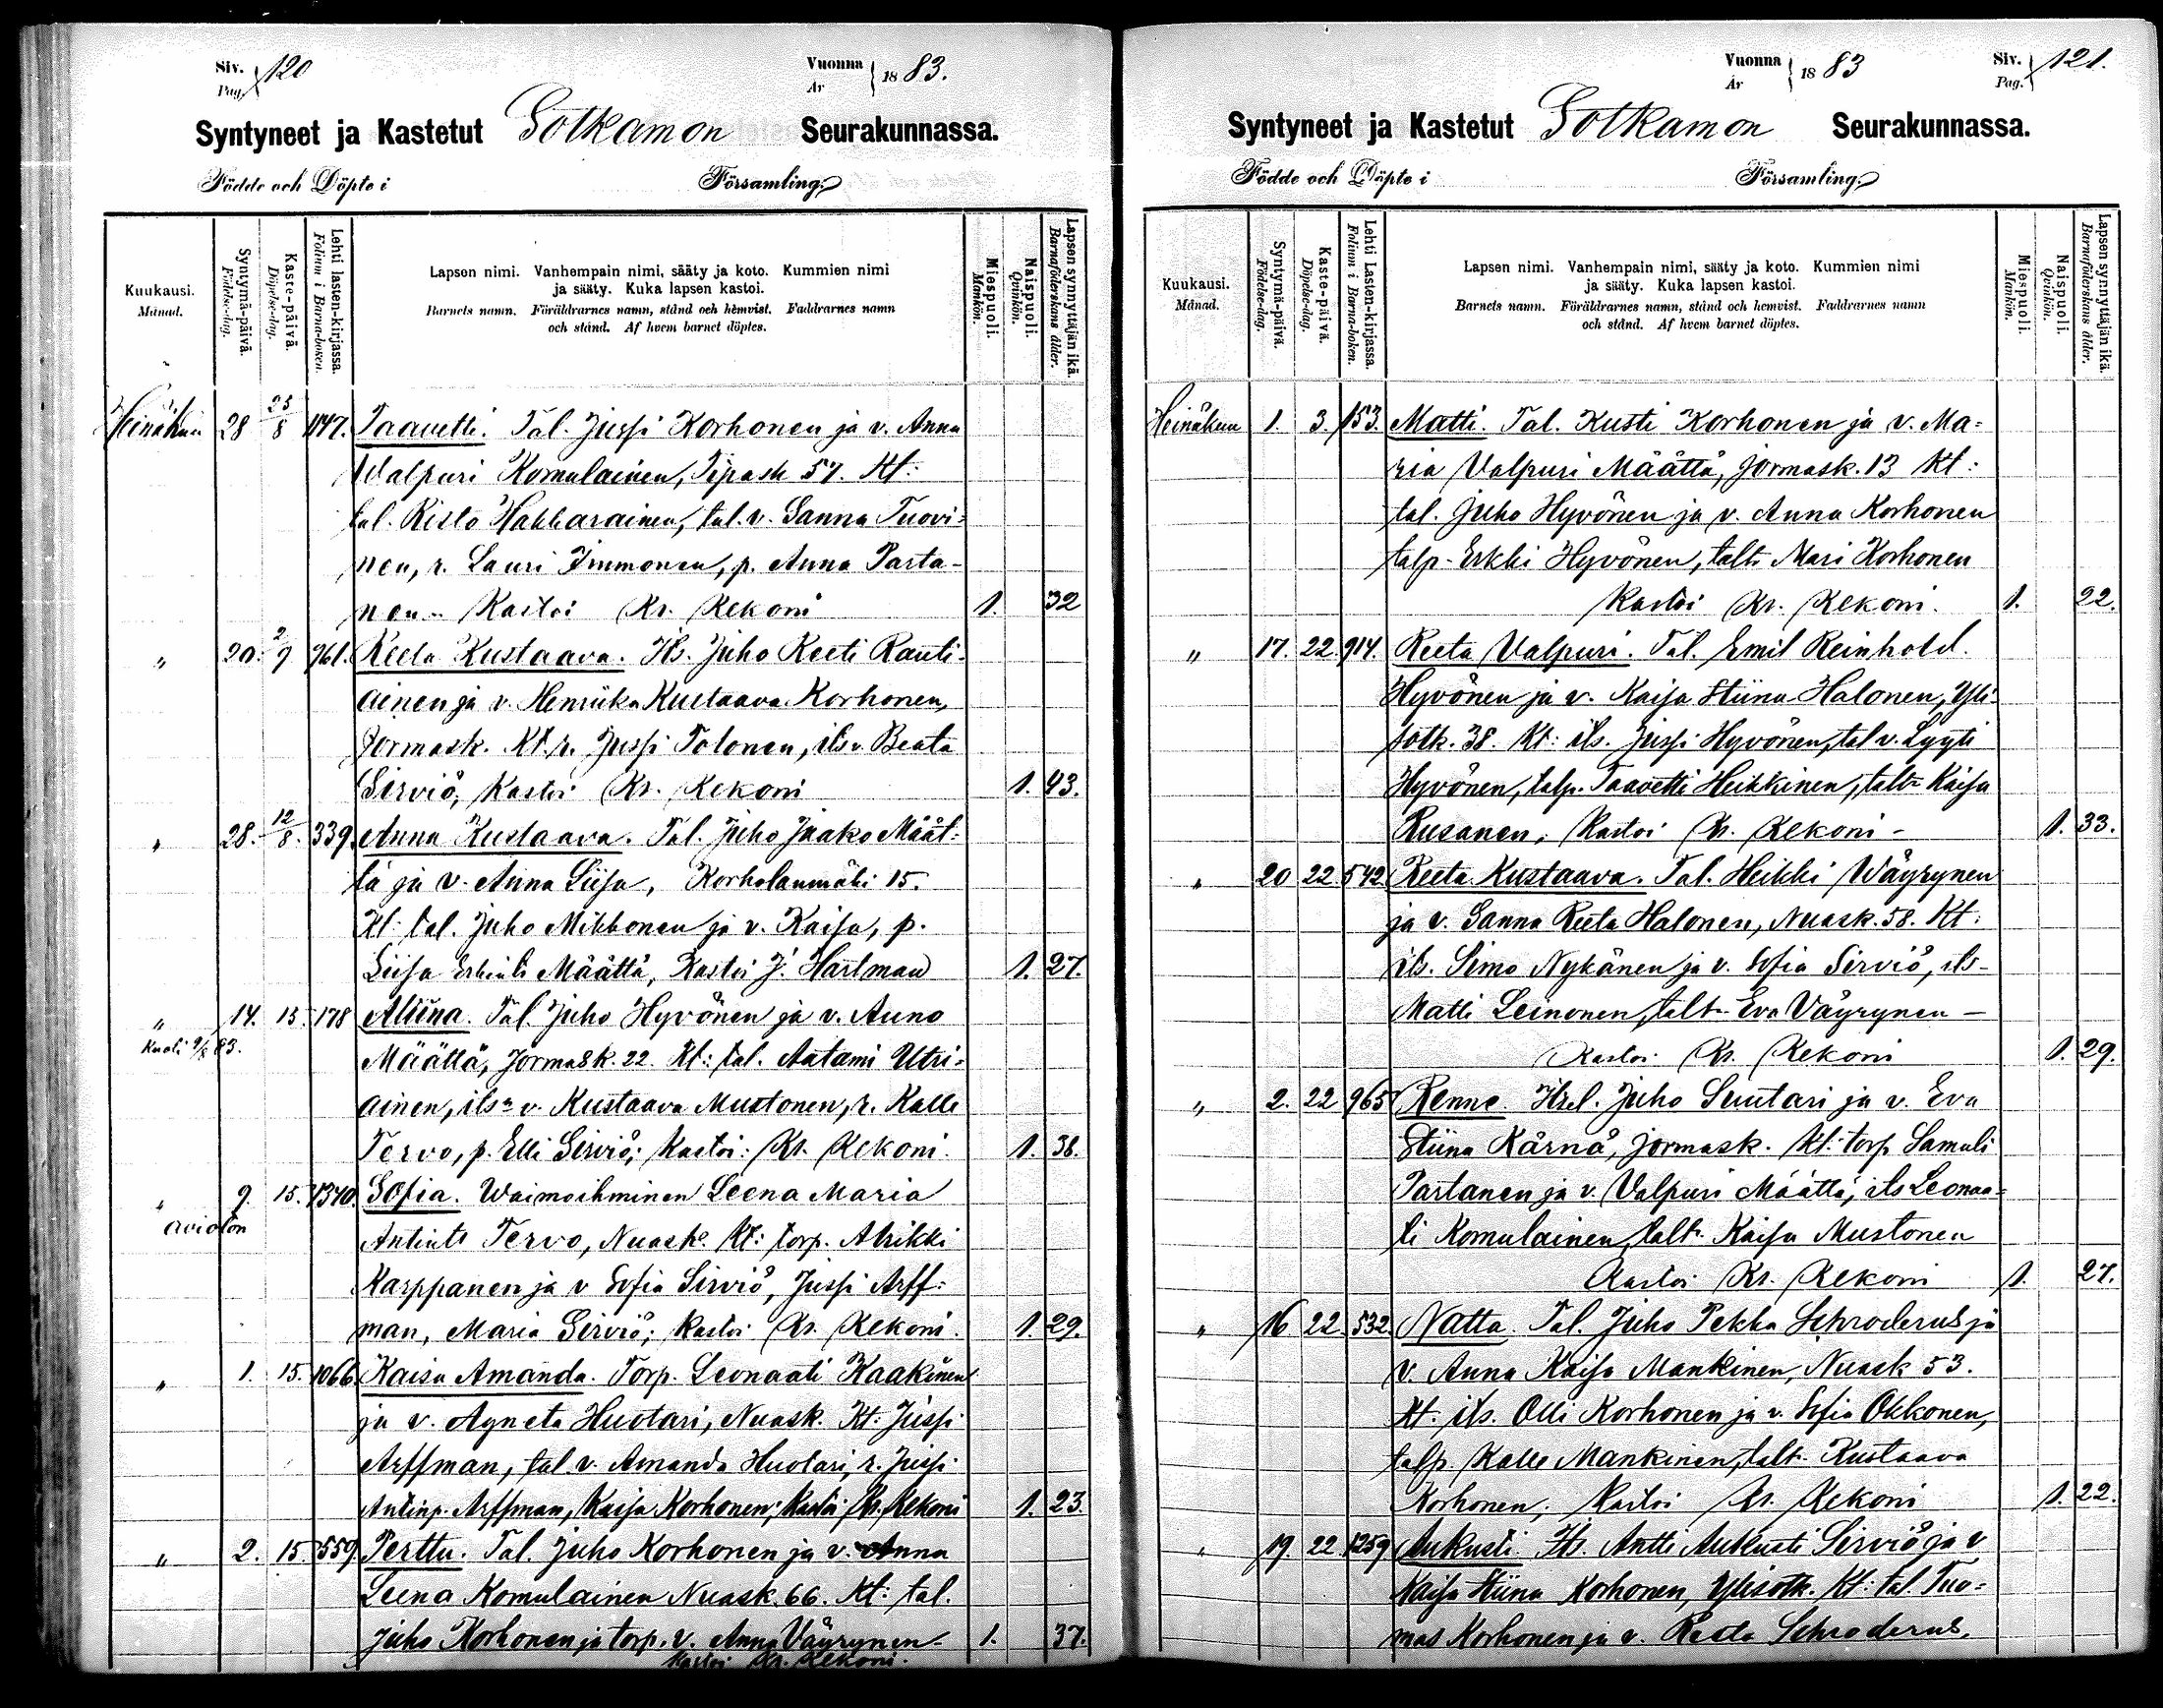 Siv. Pag. 120
Vuonna År 1883.
Syntyneet ja Kastetut Sotkamon Seurakunnassa.
Födde och Döpte i Församling.
Kuukausi. Månad.
Syntymä-päivä. Födelse-dag.
Kaste-päivä. Döpelse-dag.
Lehti lasten-kirjassa. Folium i Barna-boken.
Lapsen nimi. Vanhempain nimi, sääty ja koto. Kummien nimi
ja sääty. Kuka lapsen kastoi.
Barnets namn. Föräldrarnes namn, stånd och hemvist. Faddrarnes namn
och stånd. Af hvem barnet döptes.
Miespuoli. Mankön.
Naispuoli. Qvinkön.
Lapsen synnyttäjän ikä. Barnaföderskans ålder.
Heinäkuu 28 25/8 1147. Taavetti. Tal. Jussi Korhonen ja v. Anna
Walpuri Komulainen, Tipask 57. Kt:
tal. Risto Hakkarainen, tal. v. Sanna Tuovi-
nen, r. Lauri Immonen, p. Anna Parta-
nen. Kastoi Kr. Rekoni 1. 32
" 20. 2/9 961. Reeta Kustaava. Its. Juho Reeti Rauti-
ainen ja v. Henriika Kustaava Korhonen,
Jormask. Kt. r. Jussi Tolonen, its v. Beata
Sirviö; Kastoi Kr. Rekoni 1. 43.
" 28. 12/8. 339. Anna Kustaava. Tal. Juho Jaako Määt-
tä ja v. Anna Liisa, Korholanmäki 15.
Kt: tal. Juho Mikkonen ja v. Kaisa, p.
Liisa Erkint. Määttä, Kastoi J. Hartman 1. 27.
" 14. 15. 178 Alviina. Tal. Juho Hyvönen ja v. Auno
Kuoli 9/8 83.
Määttä, Jormask. 22. Kt: tal. Aatami Utri-
ainen, its v. Kustaava Mustonen, r. Kalle
Tervo, p. Elli Sirviö; Kastoi: Kr. Rekoni. 1. 38.
" 9. 15. 1340. Sofia. Waimoihminen Leena Maria
Aviotön
Antint. Tervo, Nuask. Kt: torp. Alrikki
Karppanen ja v Sofia Sirviö, Jussi Arff-
man, Maria Sirviö; Kastoi Kr. Rekoni. 1. 29.
" 1. 15. 1066 Kaisa Amanda. Torp. Leonaati Kaakinen
ja v. Agneta Huotari, Nuask. Kt: Jussi
Arffman, tal. v. Amanda Huotari, r. Jussi
Antinp. Arffman, Kaisa Korhonen; Kastoi Kr. Rekoni 1. 23.
" 2. 15. 559 Perttu. Tal. Juho Korhonen ja v. Anna
Leena Komulainen Nuask. 66. Kt: tal.
Juho Korhonen ja torp. v. Anna Väyrynen. 1. 37.
Kastoi Kr. Rekoni.
Vuonna År 1883
Siv. Pag. 121.
Syntyneet ja Kastetut Sotkamon Seurakunnassa.
Födde och Döpte i Församling.
Kuukausi. Månad.
Syntymä-päivä. Födelse-dag.
Kaste-päivä. Döpelse-dag.
Lehti Lasten-kirjassa. Folium i Barna-boken.
Lapsen nimi. Vanhempain nimi, sääty ja koto. Kummien nimi
ja sääty. Kuka lapsen kastoi.
Barnets namn. Föräldrarnes namn, stånd och hemvist. Faddrarnes namn
och stånd. Af hvem barnet döptes.
Miespuoli. Mankön.
Naispuoli. Qvinkön.
Lapsen synnyttäjän ikä. Barnaföderskans ålder.
Heinäkuu 1. 3. 153. Matti. Tal. Kusti Korhonen ja v. Ma-
ria Valpuri Määttä, Jormask. 13 Kt:
tal. Juho Hyvönen ja v. Anna Korhonen
talp. Erkki Hyvönen, talt. Mari Korhonen
Kastoi Kr. Rekoni. 1. 22.
" 17. 22. 914. Reeta Valpuri. Tal. Emil Reinhold.
Hyvönen ja v. Kaisa Stiina Halonen, Yli-
sotk. 38. Kt: its. Jussi Hyvönen, tal v. Lyyti
Hyvönen, talp. Taavetti Heikkinen, talt. Kaisa
Rusanen; Kastoi Kr. Rekoni - 1. 33.
" 20 22 542. Reeta Kustaava. Tal. Heikki Wäyrynen
ja v. Sanna Reeta Halonen, Nuask. 58. Kt:
its. Simo Nykänen ja v. Sofia Sirviö, its.
Matti Leinonen, talt. Eva Väyrynen -
Kastoi Kr. Rekoni 1. 29.
" 2. 22 965 Renne Itsel. Juho Suutari ja v. Eva
Stiina Kärnä, Jormask. Kt: torp Samuli
Partanen ja v. Valpuri Määttä, its Leonaa-
ti Komulainen, talt. Kaisa Mustonen
Kastoi Kr. Rekoni 1. 27.
" 16 22 532 Natta. Tal. Juho Pekka Schroderus ja
v. Anna Kaisa Mankinen, Nuask 53.
Kt: its. Olli Korhonen ja v. Sofia Okkonen,
talp. Kalle Mankinen, talt. Kustaava
Korhonen; Kastoi Kr. Rekoni 1. 22.
" 19. 22 1259 Aukusti. Its. Antti Aukusti Sirviö ja v
Kaisa Stiina Korhonen, Ylisotk. Kt: tal. Tuo-
mas Korhonen ja v. Reeta Schroderus,